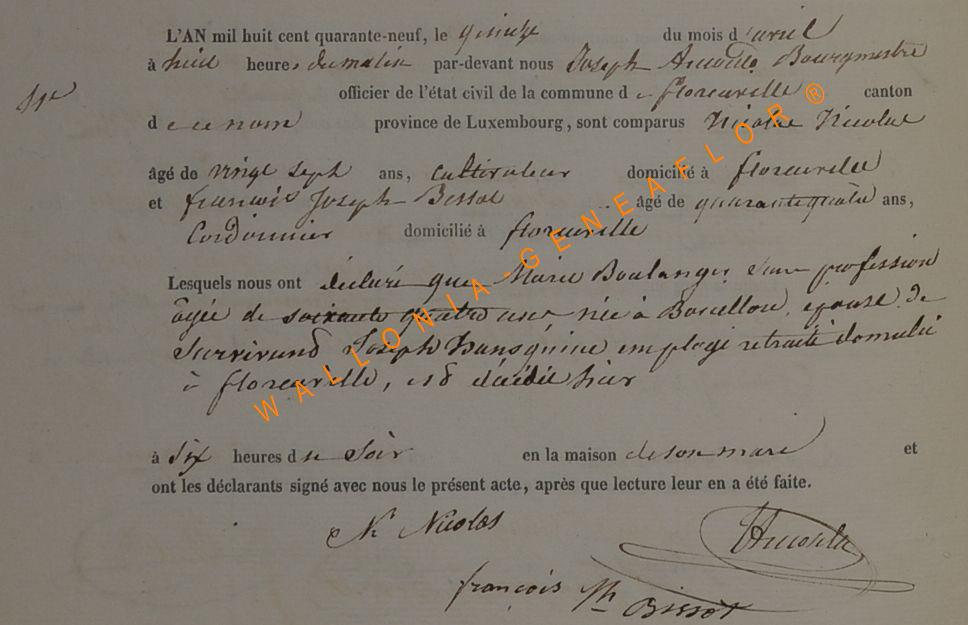 L'AN mil huit cent quarante-neuf, le quinze du mois d'avril
à huit heures du matin par-devant nous Joseph Bourgmestre
officier de l'état civil de la commune de florenville canton
de ce nom province de Luxembourg, sont comparus Nicolas Nicolas
âgé de vingt sept ans, cultivateur domicilié à florenville
et françois Joseph Bissot âgé de quarante quatre ans,
Cordonnier domicilié à florenville
Lesquels nous ont déclaré que Marie Boulanger, sans profession
âgée de soixante quatre ans née à épouse de
Survivant Joseph employé retraité domicilié
à florenville, est décédée hier
à six heures du Soir en la maison de son mari et
ont les déclarants signé avec nous le présent acte, après que lecture leur en a été faite.
N Nicolas
françois Jh Bissot
WALLONIA-GENEAFLOR ®